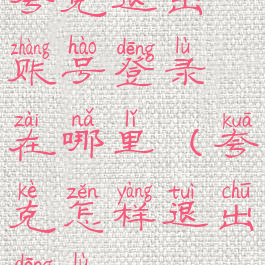 夸克退出
zhàng hào dēng lù
账号登录
zài nǎ lǐ kuā
在哪里（夸
kè zěn yàng tuì chū
克怎样退出
dēng lù